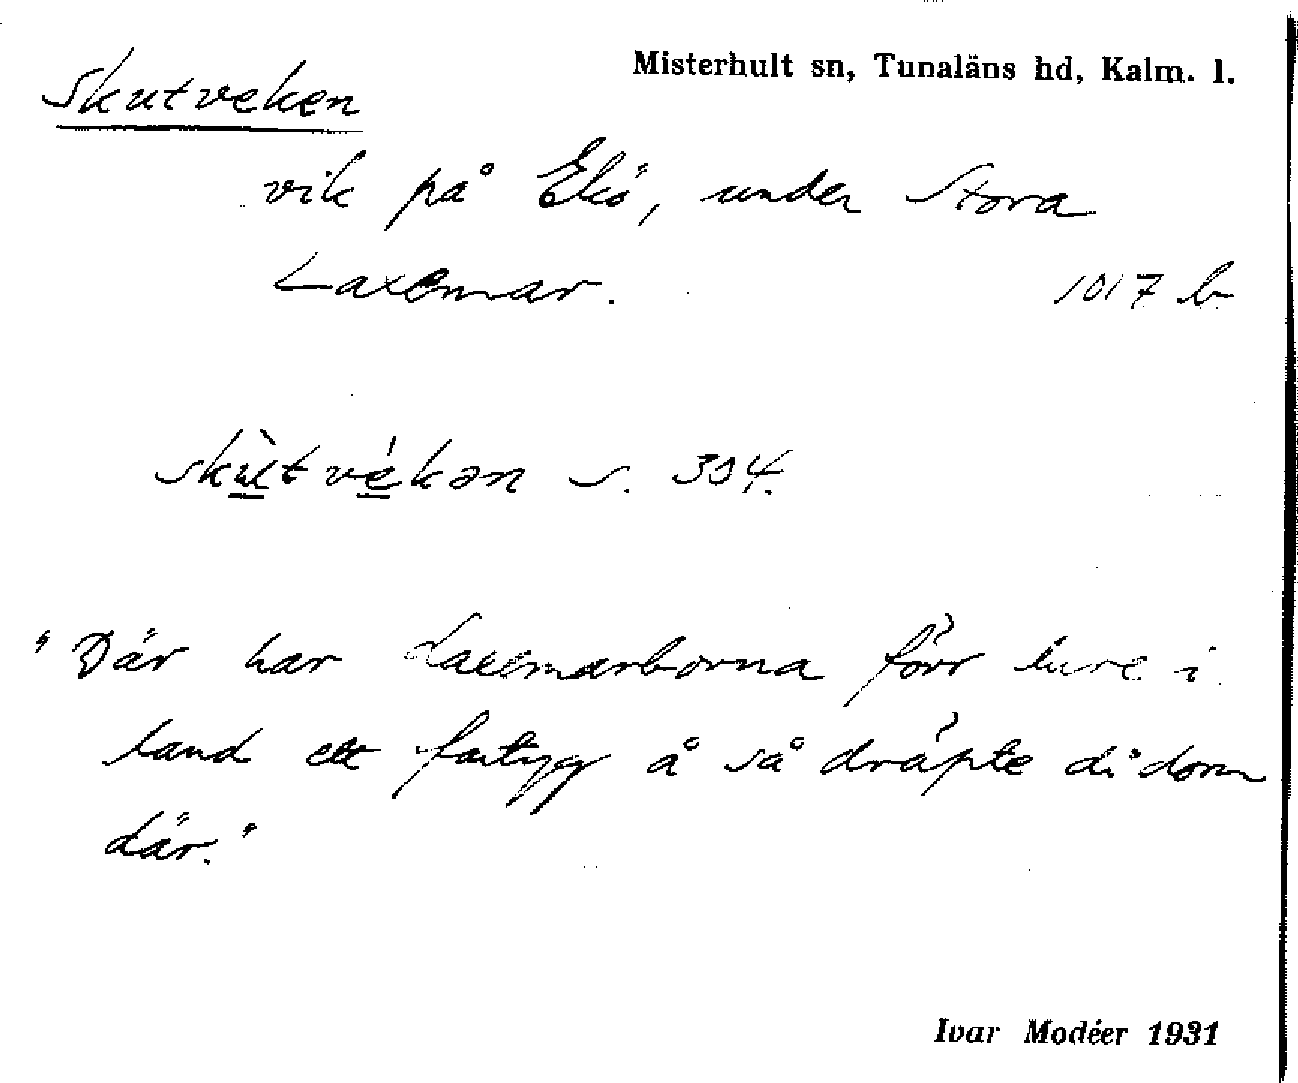 Misterhult sn, Tunaläns hd, Kalm. l.
Skutveken
vik på Ekö, under Stora
Laxemar. 1017 b
skùtvékən s. 304.
"Där har Laxemarborna förr lure i
land ett fartyg å så dräpte di dom
där."
Ivar Modéer 1931